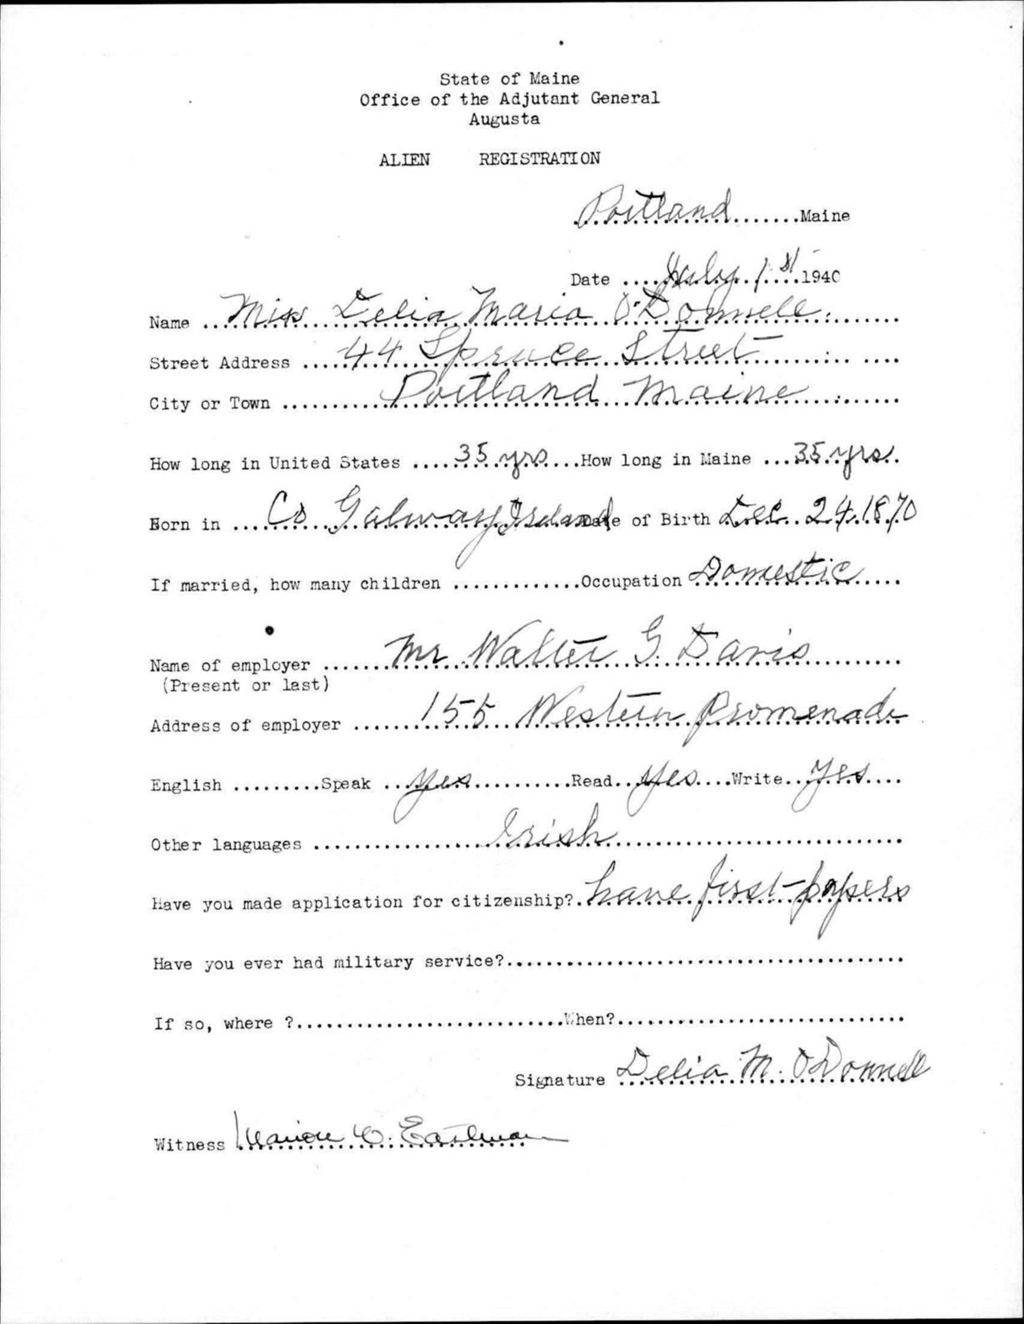 State of Maine
Office of the Adjutant General
Augusta
ALIEN REGISTRATION
Portland.......Maine
Date ....July 1st....1940
Name ..Miss Delia Maria O'Donnell.......
Street Address ...44 Spruce Street.......
City or Town ...........Portland Maine.......
How long in United States ....35 yrs....How long in Maine ...35 yrs..
Born in ...Co Galway Ireland Date of Birth Dec. 24.1870
If married, how many children .............Occupation Domestic.....
Name of employer .......Mr Walter G. Davis.........
(Present or last)
Address of employer ......155 Western Promenade
English .........Speak ..yes...........Read..yes....Write..yes....
Other languages ................Irish........................
Have you made application for citizenship?.have first-papers
Have you ever had military service?........................................
If so, where ?...........................When?.............................
Signature Delia M. O'Donnell
Witness Marion C. Eastman